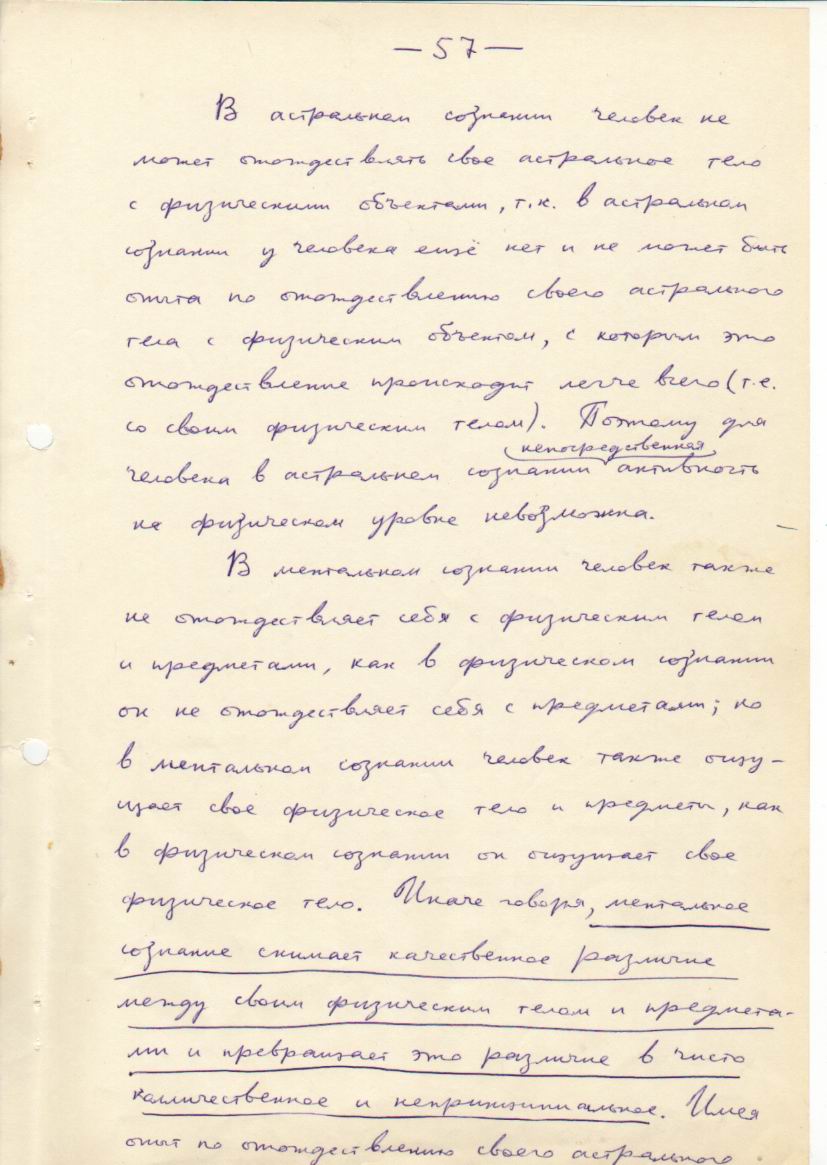 — 57 —
В астральном сознании человек не
может отождествлять свое астральное тело
с физическими объектами, т.к. в астральном
сознании у человека ещё нет и не может быть
опыта по отождествлению своего астрального
тела с физическим объектом, с которым это
отождествление происходит легче всего (т.е.
со своим физическим телом). Поэтому для
непосредственная
человека в астральном сознании активность
на физическом уровне невозможна.
В ментальном сознании человек также
не отождествляет себя с физическим телом
и предметами, как в физическом сознании
он не отождествляет себя с предметами; но
в ментальном сознании человек также ощу-
щает свое физическое тело и предметы, как
в физическом сознании он ощущает свое
физическое тело. Иначе говоря, ментальное
сознание снимает качественное различие
между своим физическим телом и предмета-
ми и превращает это различие в чисто
колличественное и непринципиальное. Имея
опыт по отождествлению своего астрального